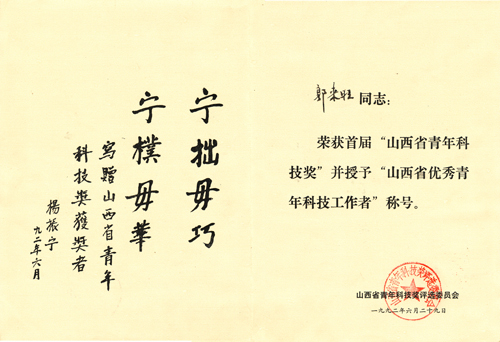 宁拙毋巧
宁樸毋華
寫贈山西省青年
科技奬獲奬者
楊振宁
九二年六月
郭来旺同志:
荣获首届“山西省青年科
技奖”并授予“山西省优秀青
年科技工作者”称号。
山西省青年科技奖评选委员会
山西省青年科技奖评选委员会
一九九二年六月二十九日